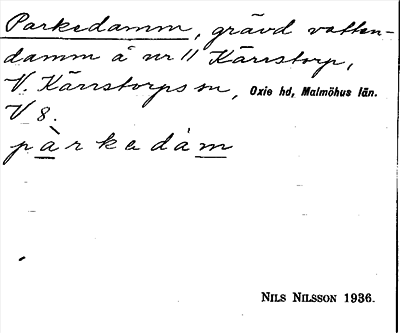 Parkedamm, grävd vatten-
damm å nr 11 Kärrstorp,
V. Kärrstorps sn, Oxie hd, Malmöhus län.
V 8.
pàrkedàm
NILS NILSSON 1936.